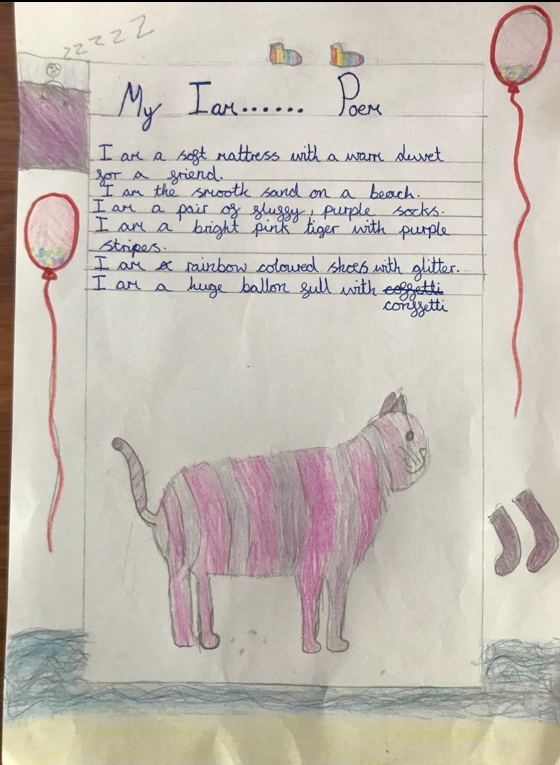 zzzzZ
My I am...... Poem
I am a soft mattress with a warm duvet
for a friend.
I am the smooth sand on a beach.
I am a pair of fluffy, purple socks.
I am a bright pink tiger with purple
stripes.
I am a rainbow coloured shoes with glitter.
I am a huge ballon full with coffetti
conffetti